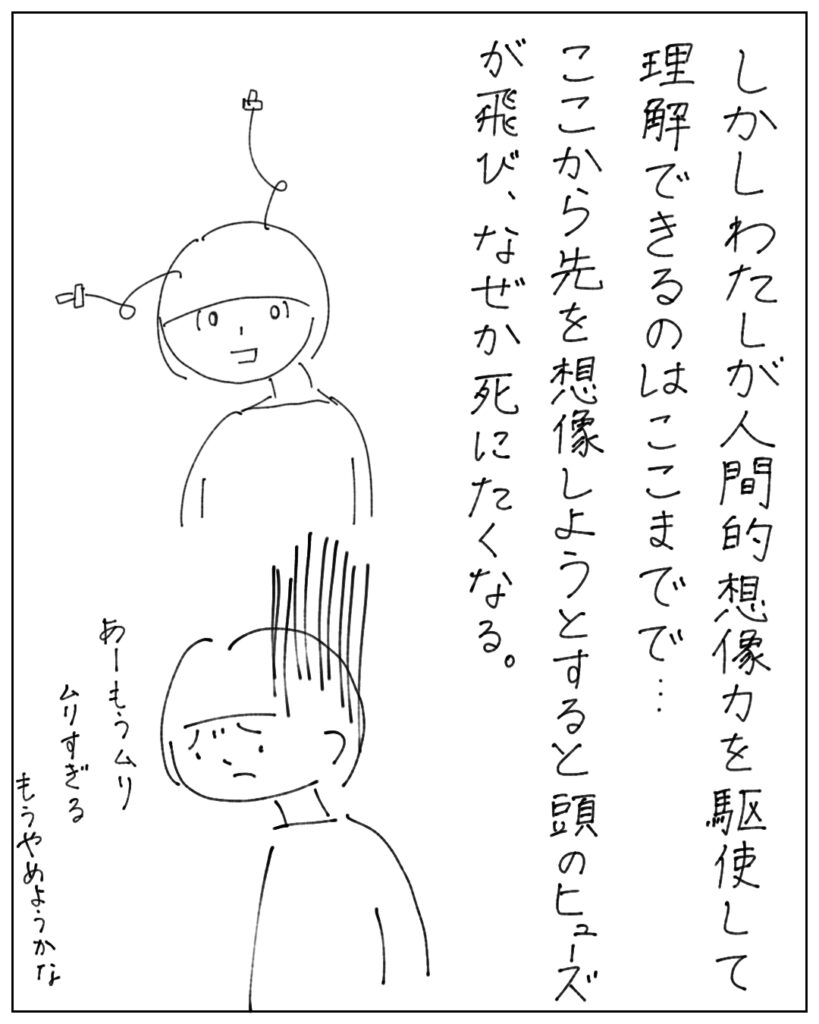 しかしわたしが人間的想像力を駆使して
理解できるのはここまでで…
ここから先を想像しようとすると頭のヒューズ
が飛び、なぜか死にたくなる。
あーもうムリ
ムリすぎる
もうやめようかな